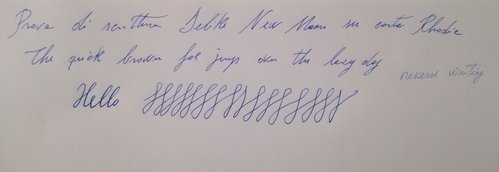 Prova di scrittura Delike New Moon su carta Rhodia
The quick brown fox jumps over the lazy dog
reverse writing
Hello